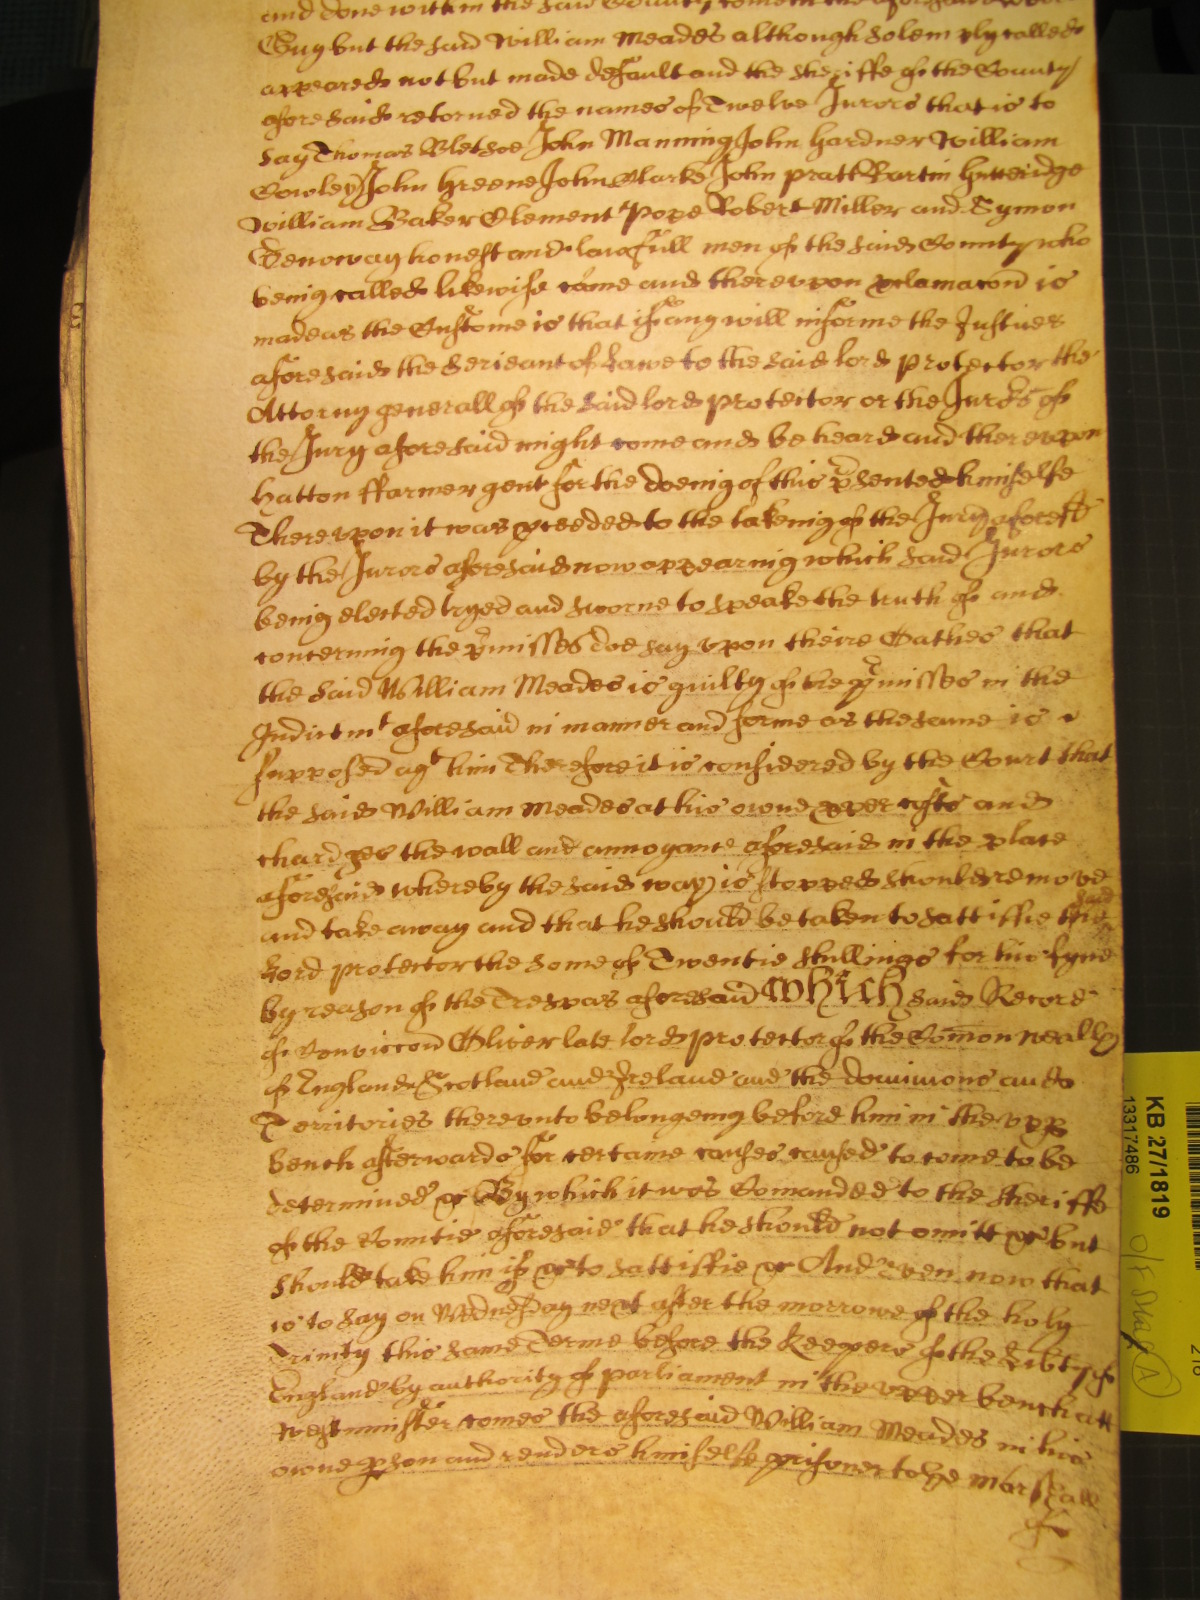 and done within the said County
Guy but the said William Meades although solemply called
appeared not but made default and the Sheriffe of the County
aforesaid retorned the names of Twelve Jurors that is to
say Thomas Bletsoe John Manning John Hardner William
Cowley John Greene John Clarke John Pratt Martin Gutteridge
William Baker Clement Pope Robert Miller and Symon
Denoway honest and lawfull men of the said County who
being called likewise came and thereupon pclamacon is
made as the Custome is that if any will informe the Justices
aforesaid the Serieant of Lawe to the said lord Protector the
Attorny generall of the said lord protector or the Jurors of
the Jury aforesaid might come and be heard and thereupon
Hatton ffarmer gent for the doeing of this psented himselfe
Thereupon it was pceeded to the takeing of the Jury aforesd
by the Jurors aforesaid now appearing which said Jurors
being elected tryed and sworne to speake the truth of and
concerning the pmisses doe say upon theire Oathes that
the said William Meades is guilty of the pmisses in the
Indictmt aforesaid in manner and forme as the same is
supposed agt him Therefore it is considered by the Court that
the said William Meades at his owne pper costs and
chardges the wall and annoyance aforesaid in the place
aforesaid whereby the said way is stopped should remove
and take away and that he should be taken to sattisfie the said
Lord protector the some of Twentie shillings for his fyne
by reason of the Trespas aforesaid which said Record
of Conviccon Oliver late lord protector of the Comon wealth
of England Scotland and Ireland and the dominions and
Territories thereunto belongeing before him in the upp
bench afterwards for certaine causes caused to come to be
determined &c By which it was Comanded to the Sheriffe
of the Countie aforesaid that he should not omitt &c but
should take him if &c to sattisfie &c And even now that
is to say on Wednesday next after the morrowe of the holy
Trinity this same Terme before the Keepers of the Libty of
England by authority of parliament in the upper bench att
Westminster comes the aforesaid William Meades in his
owne pson and renders himselfe prisoner to the Marshall
KB 27/1819
13317486